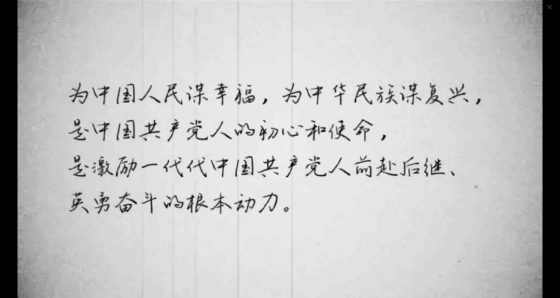 为中国人民谋幸福，为中华民族谋复兴，
是中国共产党人的初心和使命，
是激励一代代中国共产党人前赴后继、
英勇奋斗的根本动力。